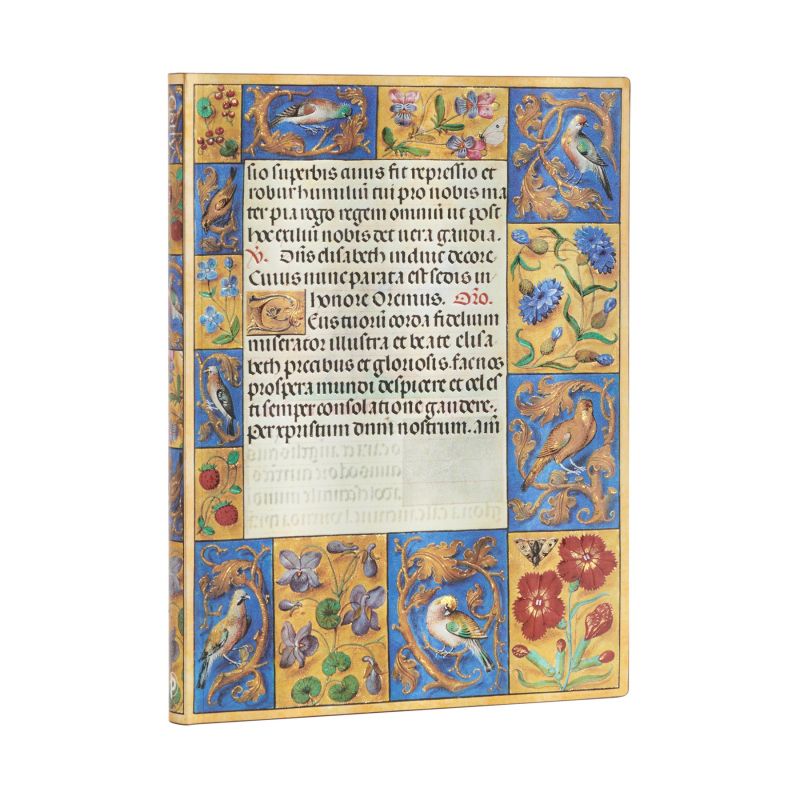 sio superbis cuius fit repressio et
robur humiliū tui pro nobis ma
ter pia rogo regem omniū ut post
hoc exiliū nobis det uera gaudia.
V. Dn̄s elisabeth induit decore
Cuius nunc parata est sedis in
honore Oremus. Oro.
Teus tuorū corda fidelium
miserator illustra et beate elisa
beth precibus et gloriosis. fac nos
prospera mundi despicere et celes
ti semper consolatione gaudere.
Per xpristum dnm̄ nostrum. Am̄